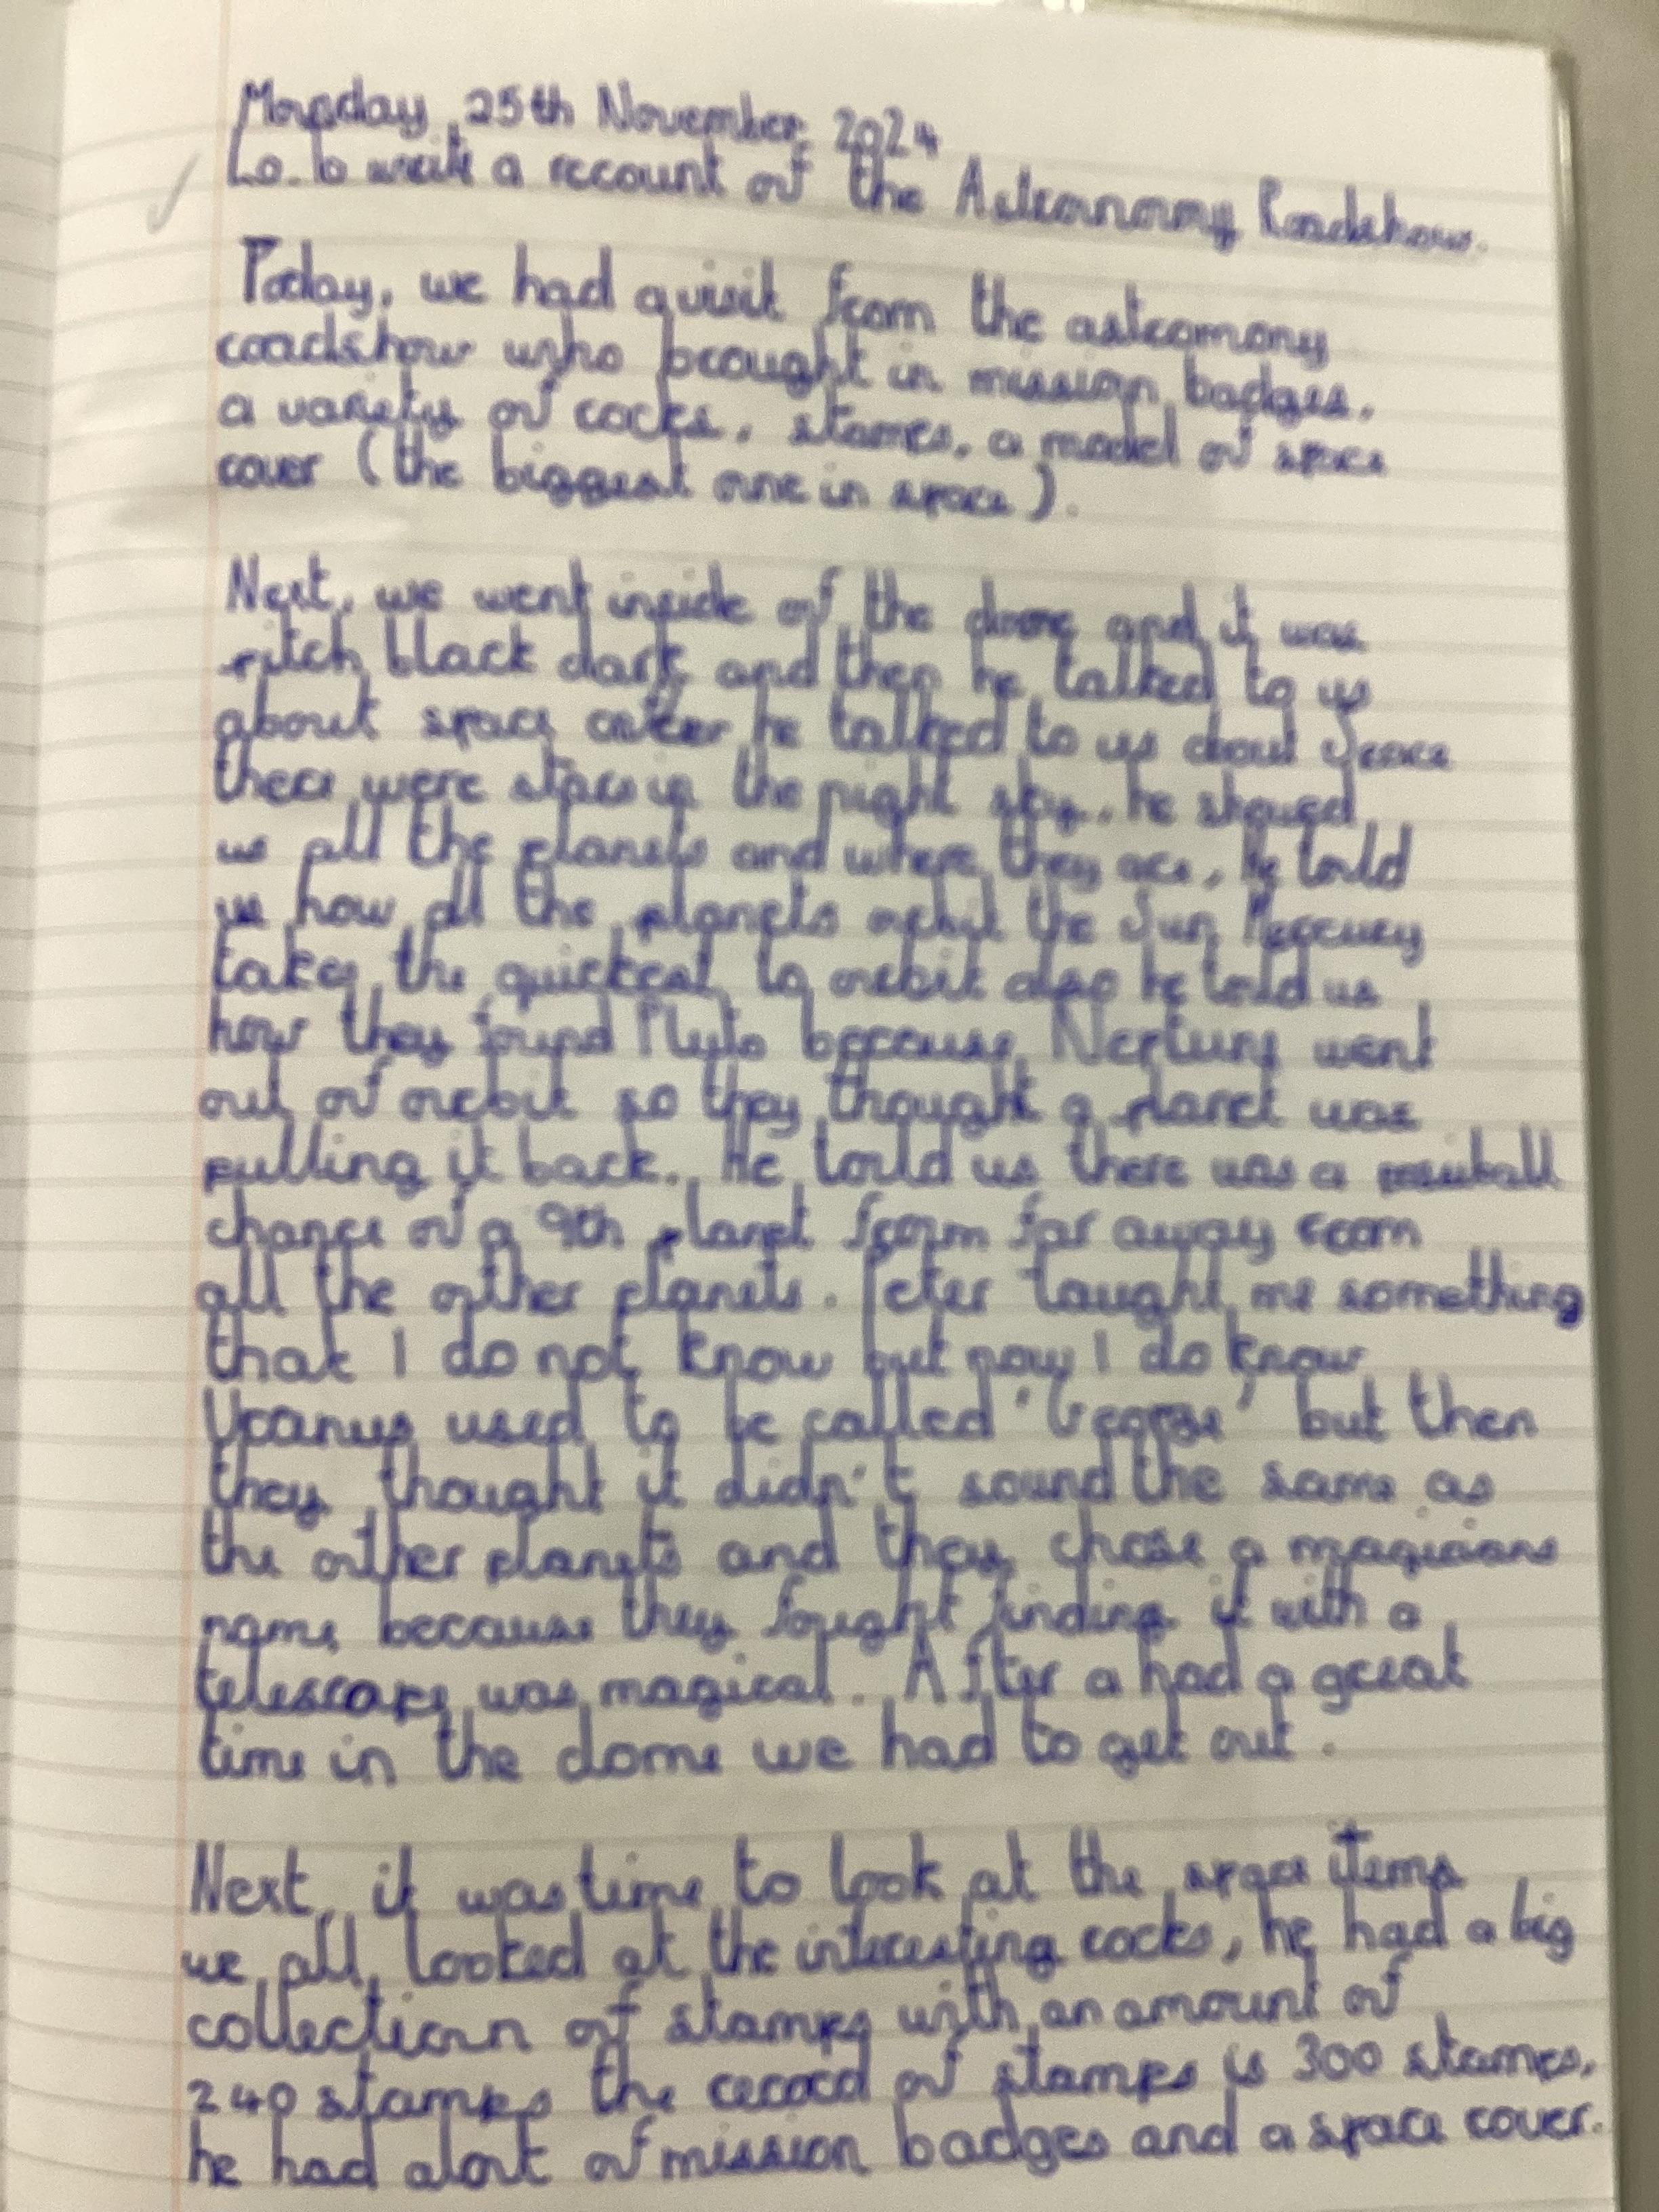 Monday 25th November 2024
Lo. to write a recount of the Astronomy Roadshow.
Today, we had a visit from the astromony
roadshow who brought in mission badges,
a variety of rocks, stames, a model of space
rover (the biggest one in space).
Next, we went inside of the dome and it was
pitch black dark and then he talked to us
about space after he talked to us about space
there were stars in the night sky, he showed
us all the planets and where they are, he told
us how all the planets orbit the Sun, Mercury
takes the quickest to orbit also he told us
how they found Pluto because Neptune went
out of orbit so they thought a planet was
pulling it back. He told us there was a
chance of a 9th planet form far away from
all the other planets. Peter taught me something
that I do not know but now I do know
Uranus used to be called 'George' but then
they thought it didn't sound the same as
the other planets and they chose a magicians
name because they fought finding it with a
telescope was magical. After a had a great
time in the dome we had to get out.
Next, it was time to look at the space items
we all looked at the interesting rocks, he had a big
collection of stamps with an amount of
240 stamps the record of stamps is 300 stamps,
he had alort of mission badges and a space rover.